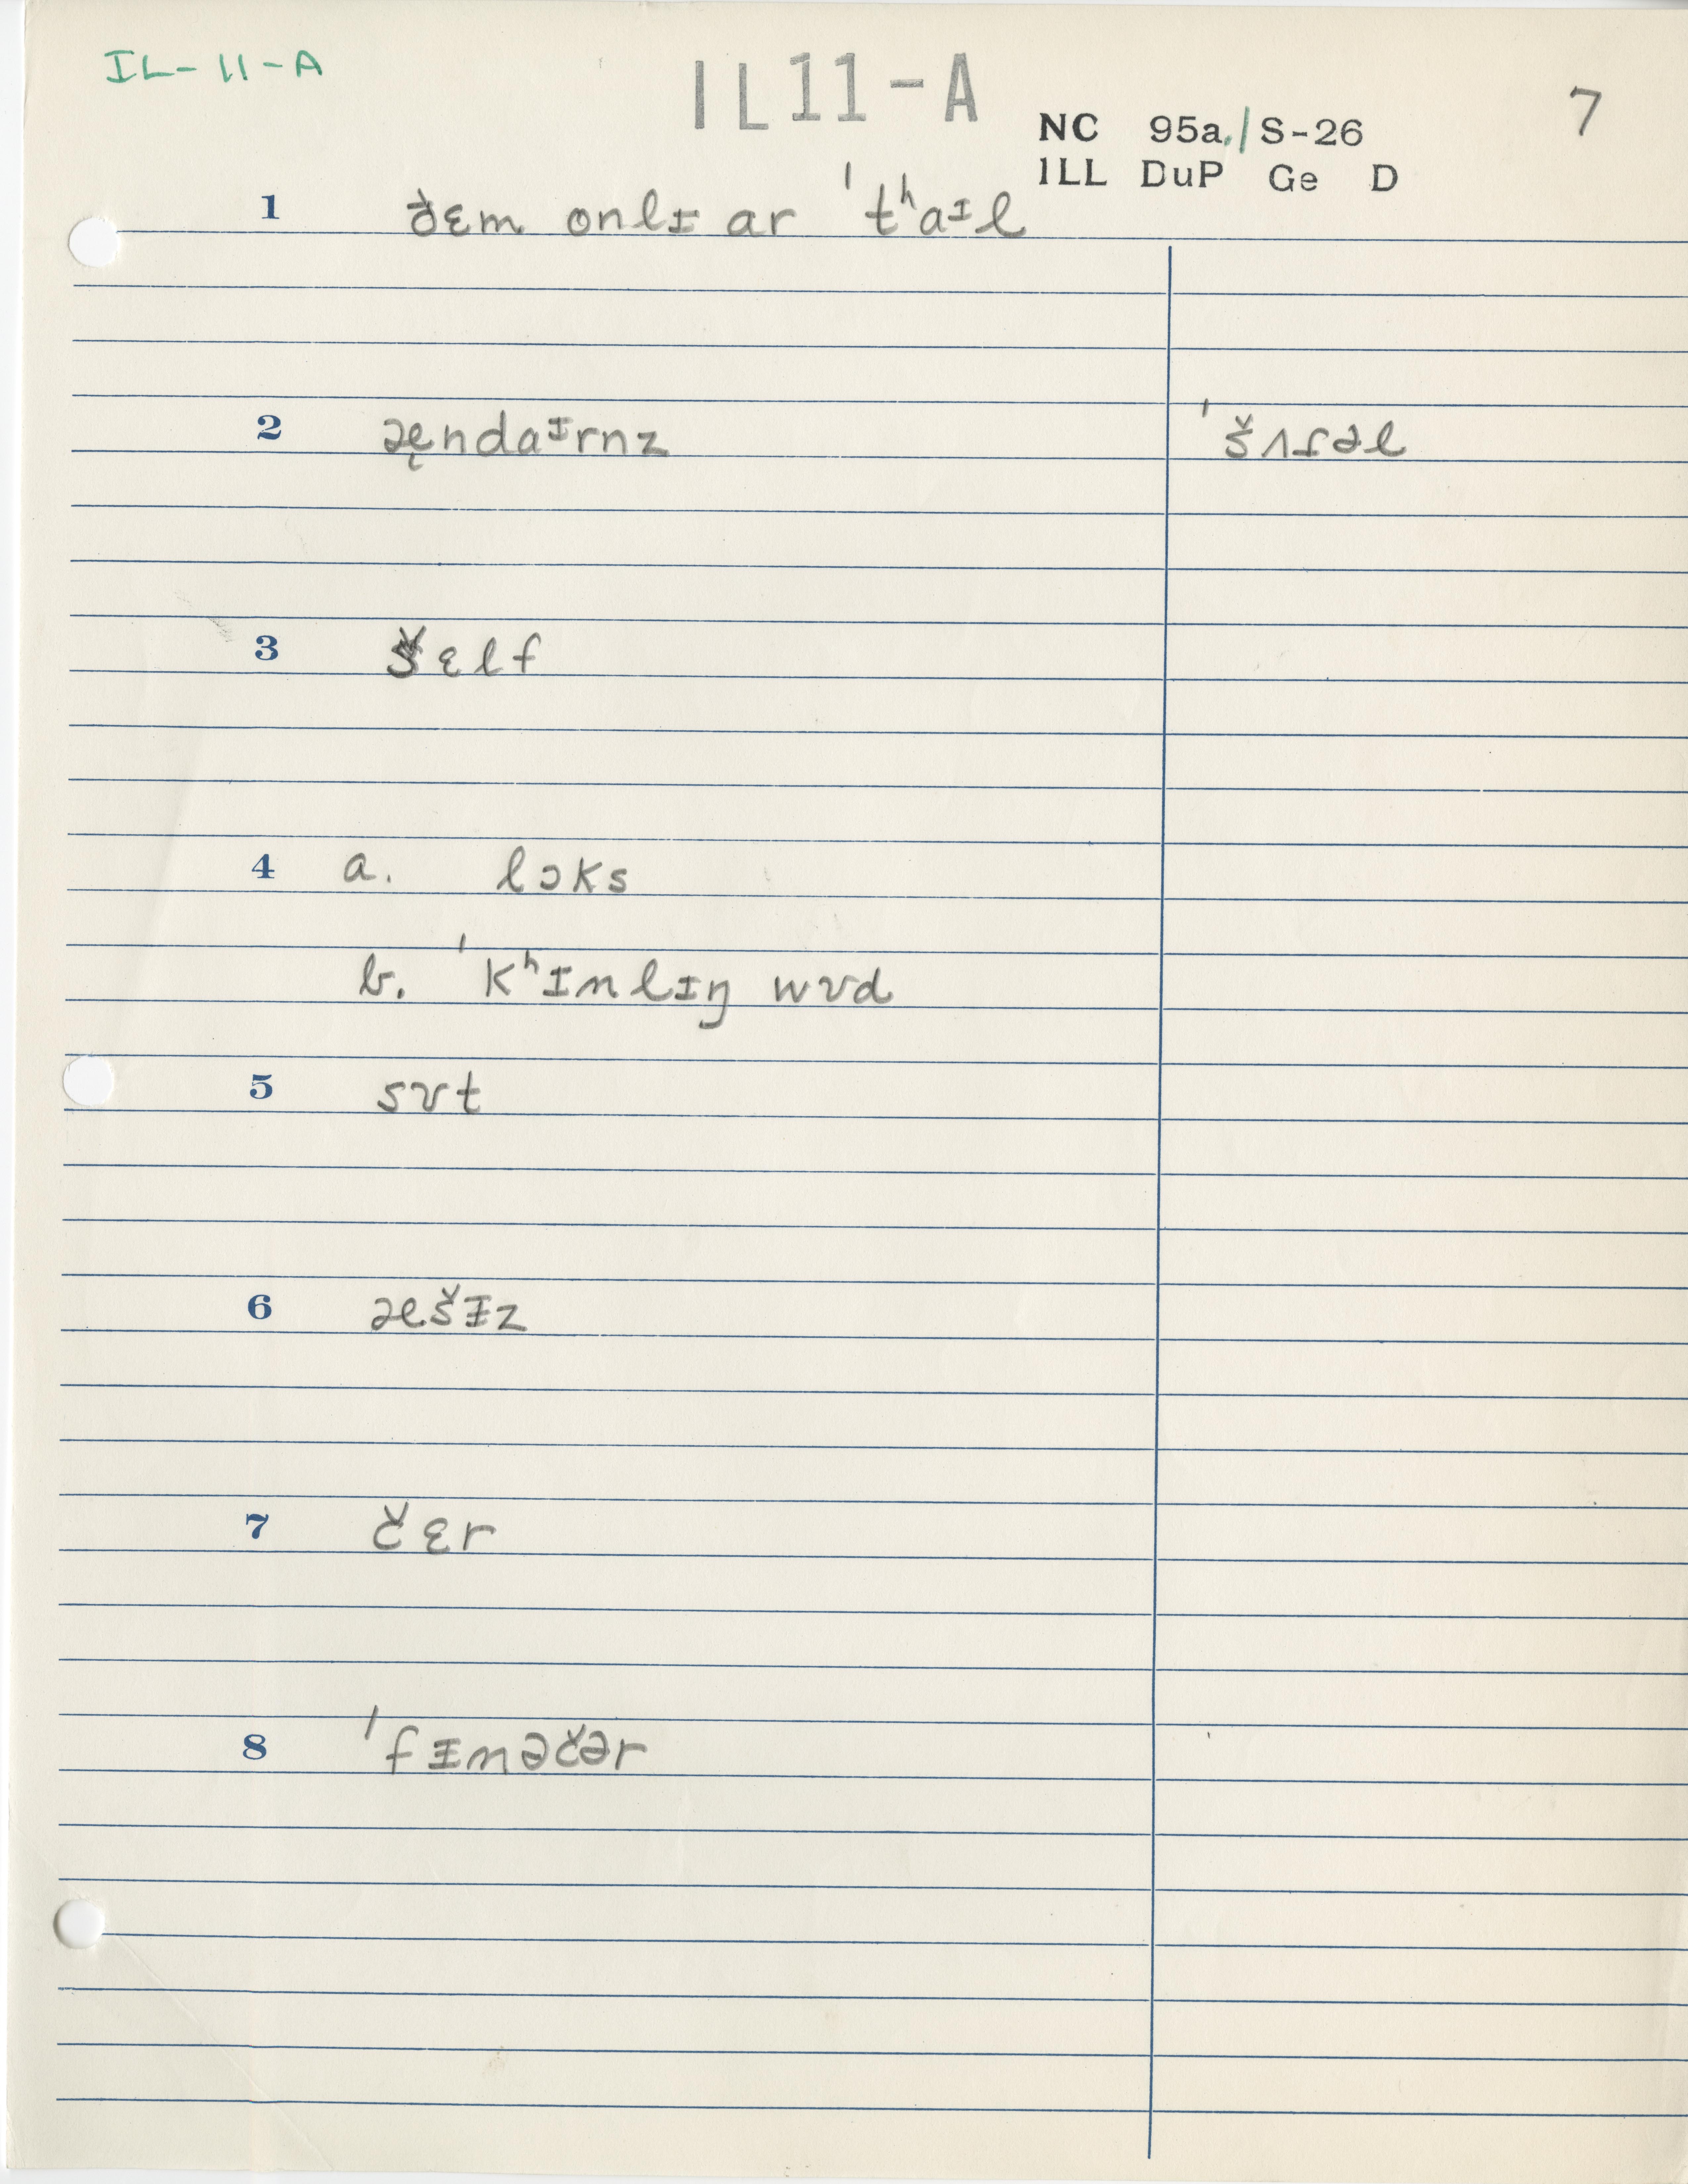 IL-11-A
IL11-A
7
NC 95a./S-26
ILL DuP Ge D
1 ðɛm onlɪ ar ˈtʰaᶦl
2 æ̨ndaᶦrnz ˈšʌɾəl
3 šɛlf
4 a. lɔks
b. ˈkʰɪnlɪŋ wʊd
5 sʊt
6 æšɨz
7 čɛr
8 ˈfɪnəčər